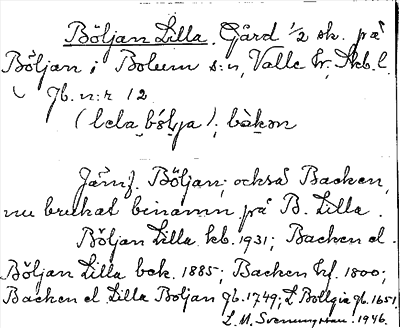 Böljan Lilla. Gård 1/2 sk. på
Böljan i Bolum s:n, Valle hr, Skb. l.
Jb. n:r 12
(lela bólja); bàkən
Jämf. Böljan; också Backen,
nu brukat binamn på B. Lilla.
Böljan Lilla kb. 1931; Backen el.
Böljan Lilla bok. 1885; Backen hf. 1800;
Backen el Lilla Boljan jb. 1749; L Bollgie jb. 1651.
L. M. Svenungsson. 1946.